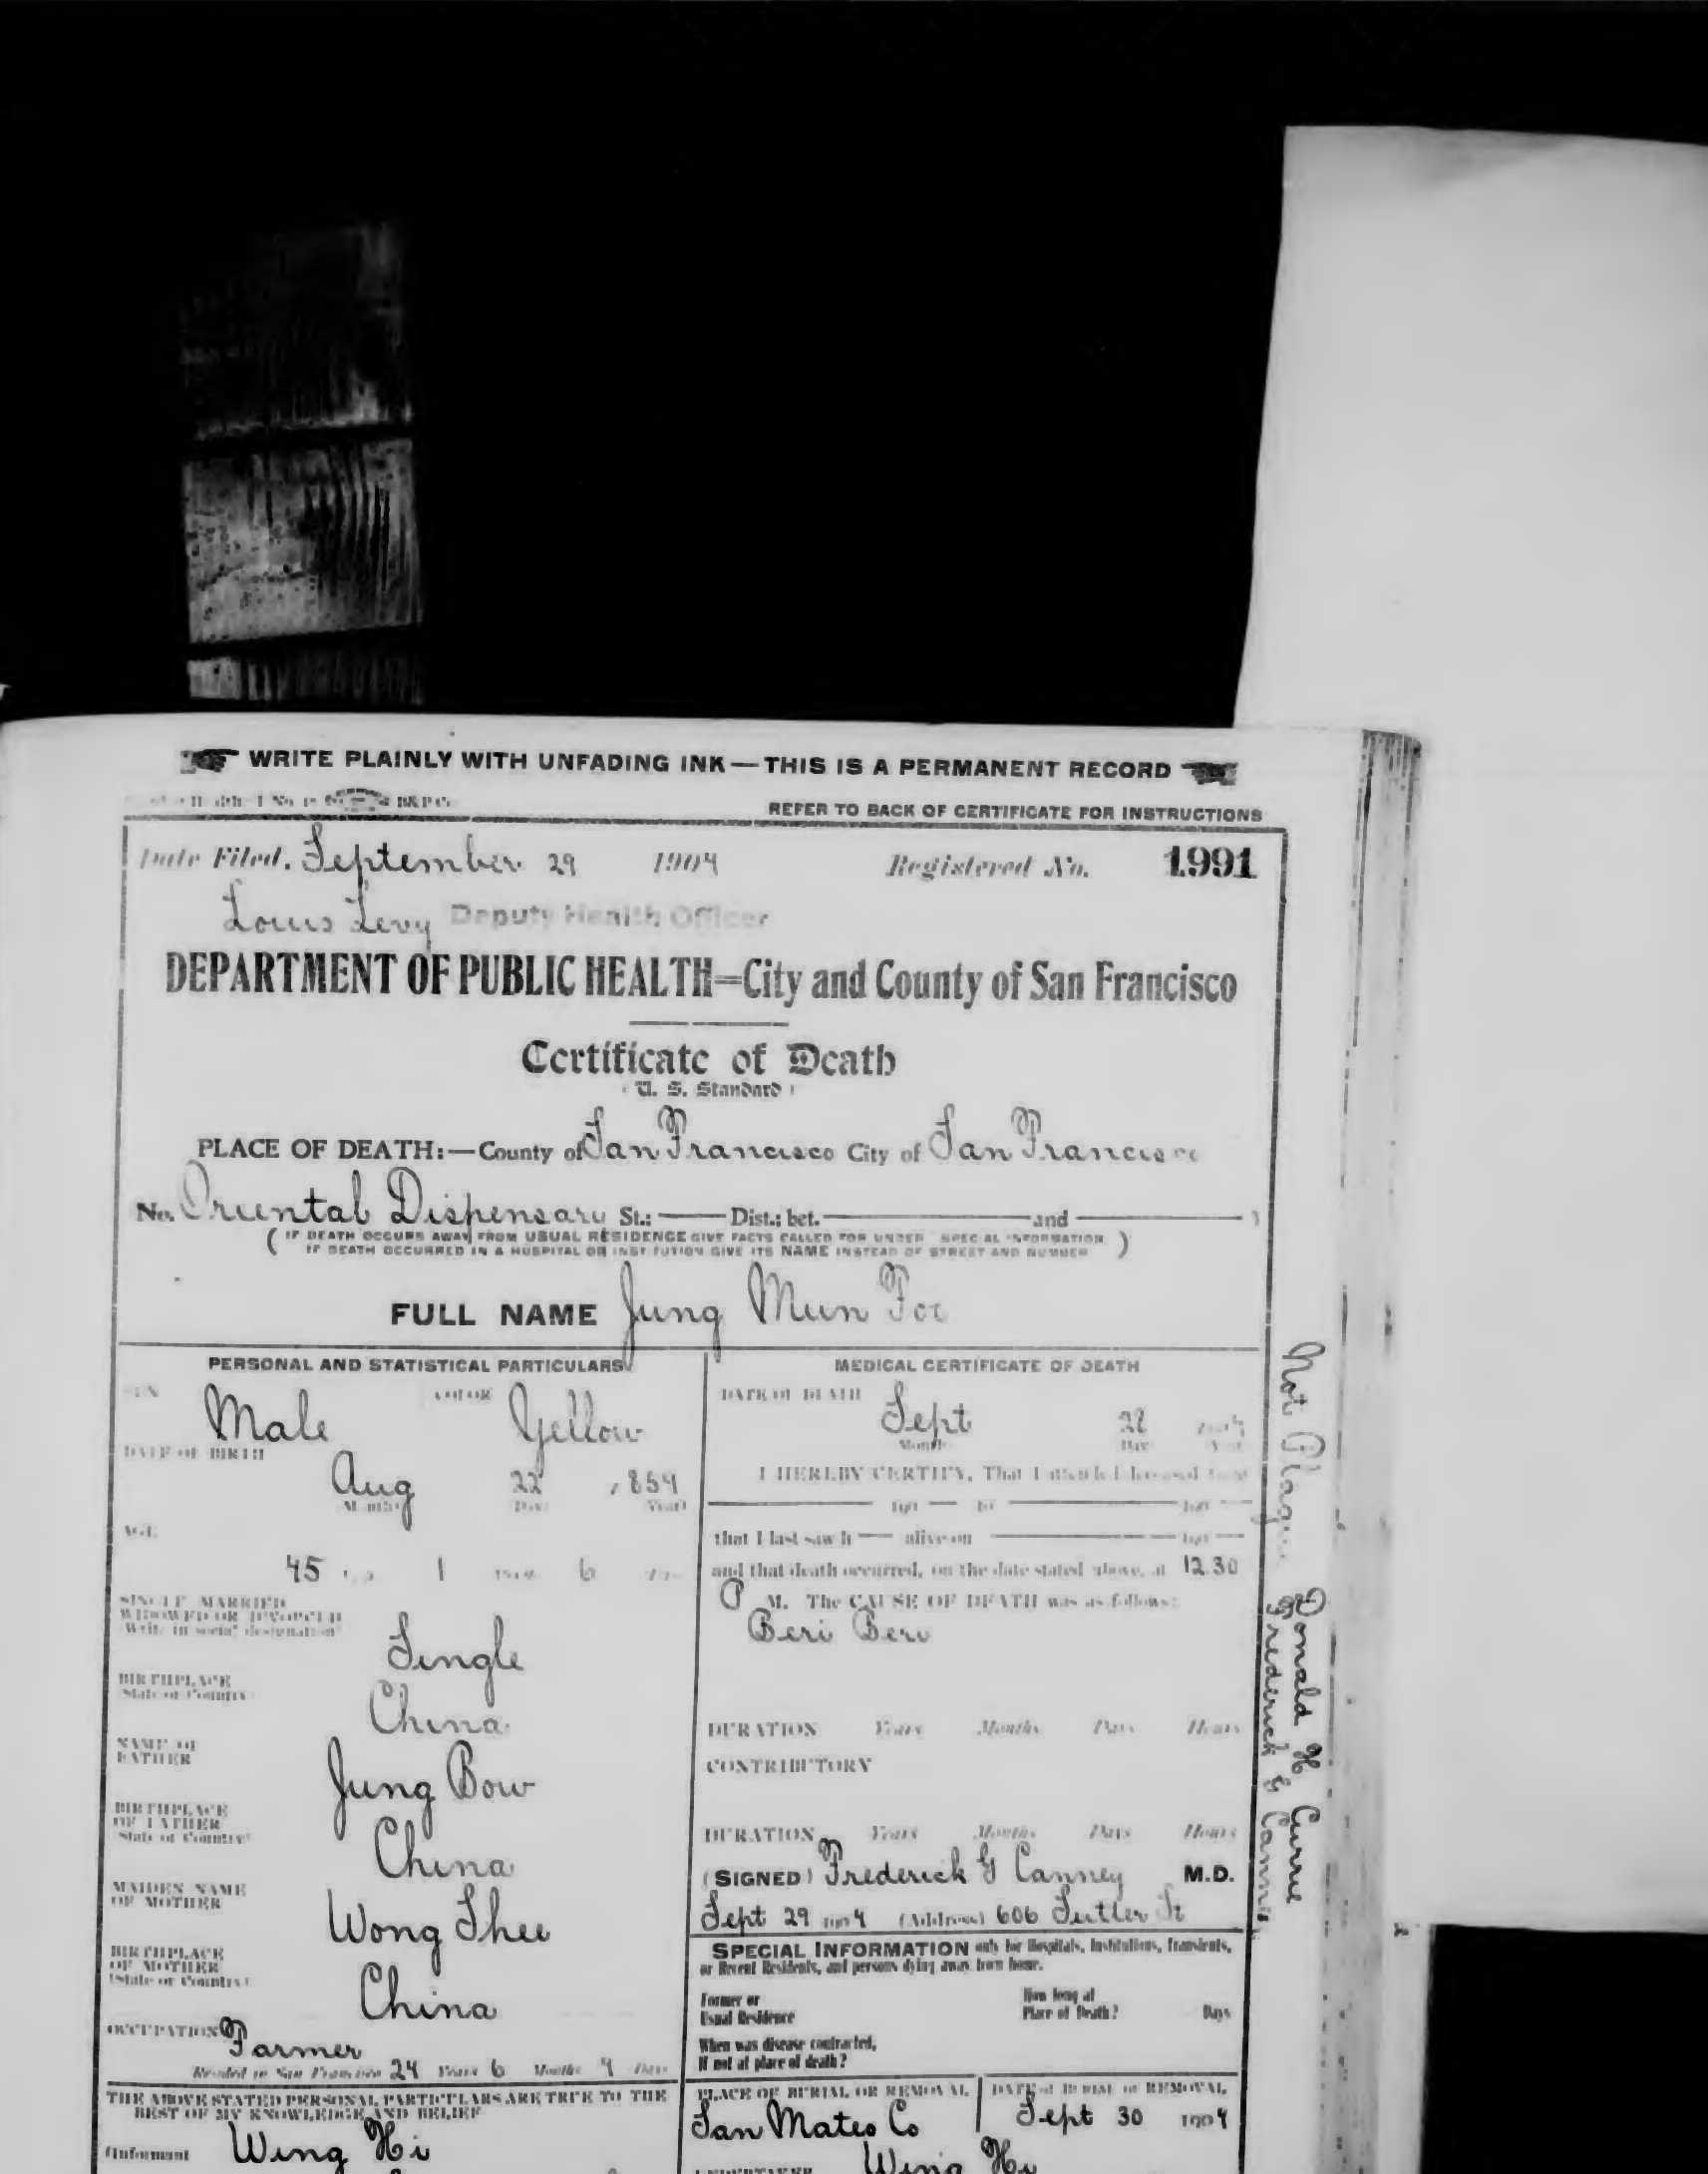 WRITE PLAINLY WITH UNFADING INK — THIS IS A PERMANENT RECORD
REFER TO BACK OF CERTIFICATE FOR INSTRUCTIONS
Date Filed, September 29 1904 Registered No. 1991
Louis Levy Deputy Health Officer
DEPARTMENT OF PUBLIC HEALTH=City and County of San Francisco
Certificate of Death
(U. S. Standard)
PLACE OF DEATH:—County of San Francisco City of San Francisco
No. Oriental Dispensary St.; Dist.; bet. and )
( IF DEATH OCCURS AWAY FROM USUAL RESIDENCE GIVE FACTS CALLED FOR UNDER "SPECIAL INFORMATION"
IF DEATH OCCURRED IN A HOSPITAL OR INSTITUTION GIVE ITS NAME INSTEAD OF STREET AND NUMBER )
FULL NAME Jung Mun
PERSONAL AND STATISTICAL PARTICULARS
SEX Male COLOR Yellow
DATE OF BIRTH
Aug 22 1859
Month Day Year
AGE
45 1 6
SINGLE, MARRIED
WIDOWED OR DIVORCED
Write in social designation
Single
BIRTHPLACE
State or Country
China
NAME OF
FATHER
Jung Bow
BIRTHPLACE
OF FATHER
State or Country
China
MAIDEN NAME
OF MOTHER
Wong Shee
BIRTHPLACE
OF MOTHER
(State or Country)
China
OCCUPATION
Farmer
Resided in San Francisco 24 Years 6 Months 4 Days
THE ABOVE STATED PERSONAL PARTICULARS ARE TRUE TO THE
BEST OF MY KNOWLEDGE AND BELIEF
(Informant Wing Hi
MEDICAL CERTIFICATE OF DEATH
DATE OF DEATH
Sept 28 1904
Month Day Year
I HEREBY CERTIFY, That I attended deceased from
190 to 190
that I last saw h alive on 190
and that death occurred, on the date stated above, at 12.30
P M. The CAUSE OF DEATH was as follows:
Beri Beri
DURATION Years Months Days Hours
CONTRIBUTORY
DURATION Years Months Days Hours
(SIGNED) Frederick G Canney M.D.
Sept 29 1904 (Address) 606 Sutter St
SPECIAL INFORMATION only for Hospitals, Institutions, Transients,
or Recent Residents, and persons dying away from home.
Former or
Usual Residence
How long at
Place of Death? Days
When was disease contracted,
If not at place of death?
PLACE OF BURIAL OR REMOVAL
San Mateo Co
DATE of BURIAL or REMOVAL
Sept 30 1904
UNDERTAKER Wing Hi
Not Plague Donald H Currie
Frederick G Canney